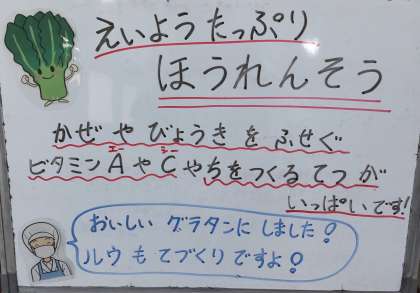 えいようたっぷり
ほうれんそう
かぜ や びょうき を ふせぐ
エー シー
ビタミン A や C や ちをつくる てつ が
いっぱいです!
おいしい グラタンに しました!
ルウ も てづくり ですよ!